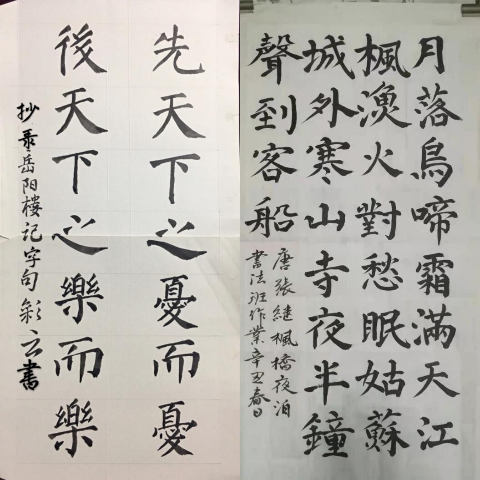 先天下之憂而憂
後天下之樂而樂
抄录岳阳楼記字句 彩云書
月落烏啼霜滿天江
楓漁火對愁眠姑蘇
城外寒山寺夜半鐘
聲到客船
唐張继楓橋夜泊
書法班作業辛丑春日